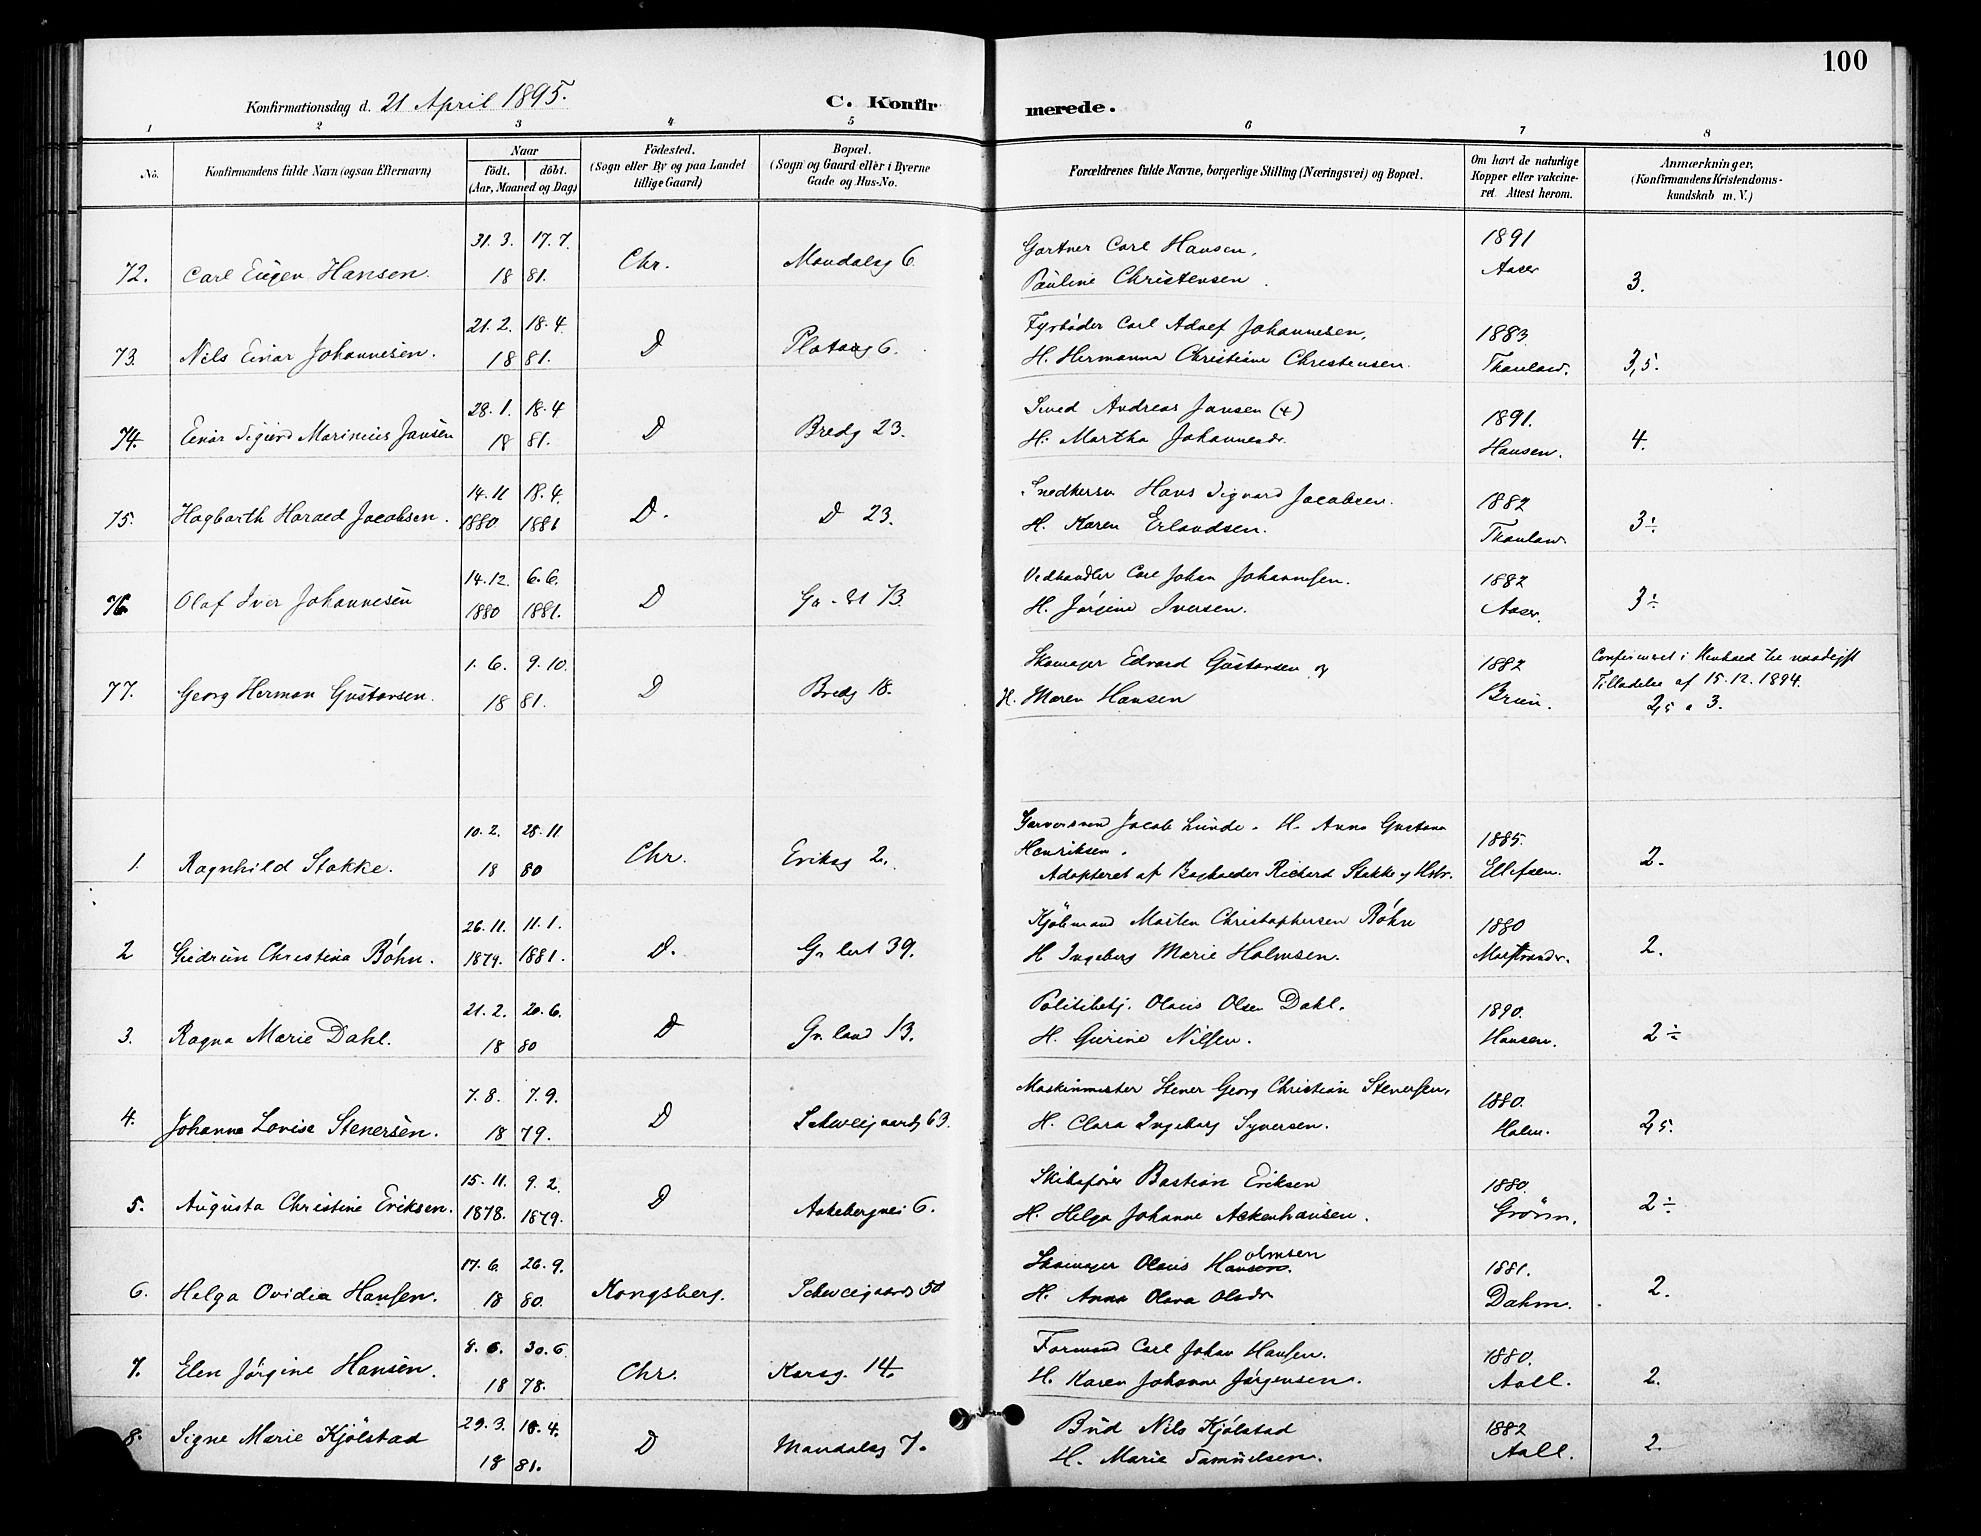 100
Konfirmationsdag d. 21 April 1895.
C. Konfirmerede.
1 2 3 4 5 6 7 8
No.
Konfirmandens fulde Navn (ogsaa Efternavn)
Naar
födt. döbt.
(Aar, Maaned og Dag)
Födested.
(Sogn eller By og paa Landet
tillige Gaard)
Bopæl.
(Sogn og Gaard eller i Byerne
Gade og Hus-No.
Forældrenes fulde Navne, borgerlige Stilling (Næringsvei) og Bopæl.
Om havt de naturlige
Kopper eller vakcine-
ret. Attest herom.
Anmærkninger.
(Konfirmandens Kristendoms-
kundskab m. V.)
31. 3. 17. 7. Gartner Carl Hansen, 1891
72. Carl Eugen Hansen. 18 81. Chr. Mandalsg 6. Pauline Christensen. Aaser 3.
21. 2. 18. 4. Fyrbøder Carl Adolf Johannesen, 1883.
73. Nils Einar Johannesen. 18 81. D Platoug 6. H. Hermanna Christiane Christensen. Thaulow. 3,5.
28. 1. 18. 4 Smed Andreas Jansen (+) 1891.
74. Einar Sigurd Marinius Jansen 18 81. D Bredg 23. H. Martha Johannesdr. Hansen. 4.
14. 11 18. 4. Snedkersv Hans Sigvard Jacobsen. 1882
75. Hagbarth Harald Jacobsen. 1880 1881 D. D 23. H. Karen Erlandsen. Thaulow. 3÷
14. 12. 6. 6. Vedhandler Carl Johan Johannesen. 1882
76. Olaf Iver Johannesen 1880 1881. D Gr. 73. H. Jørgine Iversen. Aaser. 3÷
1. 6. 9. 10. Skomager Edvard Gustavsen og 1882
77. Georg Herman Gustavsen. 18 81. D Bredg 18. H. Maren Hansen Bruun.
Confirmeret i Henhold til naadigst
Tilladelse af 15. 12. 1894.
2,5 a 3.
10. 2. 28. 11 Garversvend Jacob Lunde. H. Anna Gustava
Henriksen. 1885.
1. Ragnhild Stokke. 18 80 Chr. Eriksg 2. Adopteret af Richard Stokke og Hstr. Ellefsen. 2.
26. 11. 11. 1. Kjøbmand Morten Christophersen Bøhn 1880
2 Gudrun Christina Bøhn. 1879. 1881. D. Gr. lert 39. H Ingeborg Marie Holmsen. 2.
21. 2. 20. 6. Politibetj. Olaus Olsen Dahl. 1890.
3. Ragna Marie Dahl. 18 80 D Gr. land 13. H. Gurine Nilsen. Hansen. 2÷
7. 8. 7. 9. Maskinmester Stener Georg Christian Stenersen, 1880.
4. Johanna Lovise Stenersen. 18 79. D Schweigaardsg 63. H. Clara Ingeborg Syversen. Holm. 2,5.
15. 11. 9. 2. Skibsfører Bastian Eriksen 1880.
5. Augusta Christine Eriksen. 1878. 1879. D Aakebergvei 6. H. Helga Johanne Ackenhausen. Grønn. 2÷
17. 6. 26. 9. Skomager Olaus Hansen. olmsen 1881.
6. Helga Ovidia Hansen. 18 80. Kongsberg. Schweigaards 50 H. Anna Olava Olsdr Dahm. 2.
8. 6. 30. 6. Formand Carl Johan Hansen. 1880.
7. Elen Jørgine Hansen. 18 78. Chr. Korsg. 14. H. Karen Johanne Jørgensen. Aall. 2.
29. 3. 18. 4. Bud Nils Kjølstad 1882
8. Signe Marie Kjølstad 18 81. D Mandalsg 7. H. Marie Samuelsen. Aall. 2.